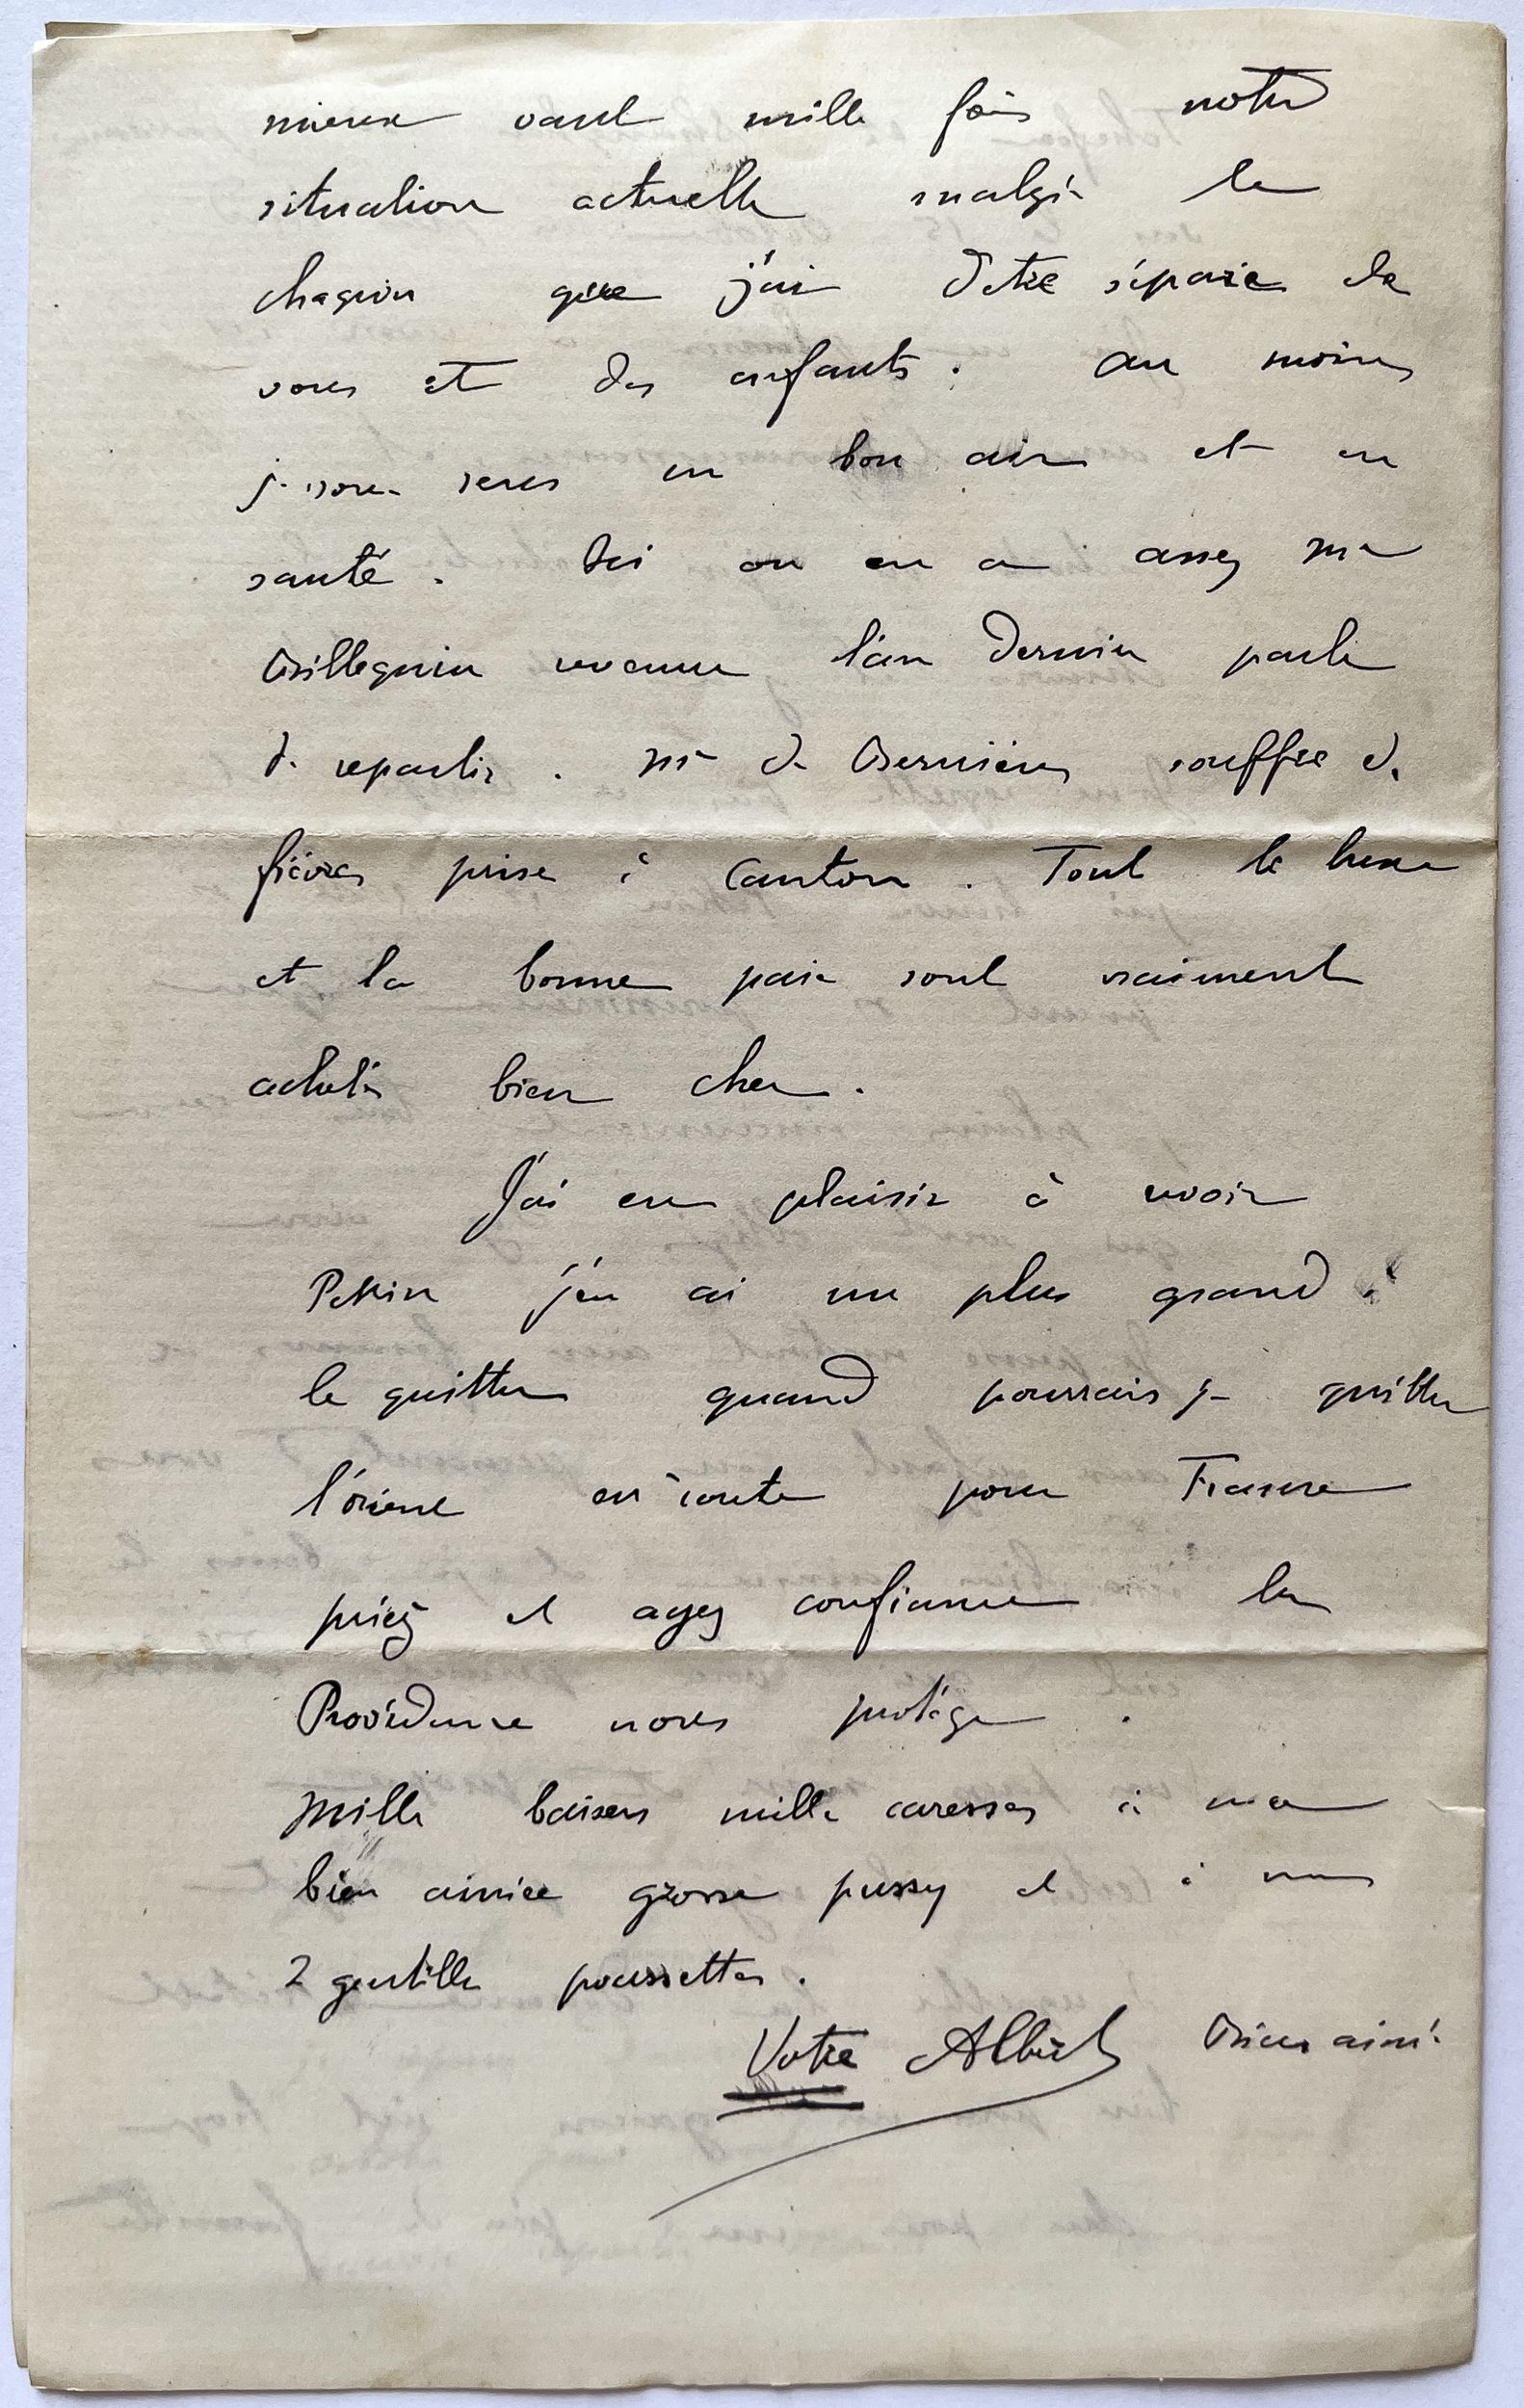 mieux vaut mille fois notre
situation actuelle malgré le
chagrin que j'ai d'etre séparé de
vous et des enfants. Au moins
je vous sens en bon air et en
santé. Ici on en a assez Me
Billequin revenue l'an dernier parle
de repartir. Me de Bernières souffre de
fièvres prise à Canton. Tout le luxe
et la bonne paie sont vraiment
achetés bien cher.
J'ai eu plaisir à revoir
Pekin j'en ai un plus grand à
le quitter quand pourrais je quitter
l'orient en route pour France
priez et ayez confiance la
Providence nous protége.
Mille baisers mille caresses à ma
bien aimée grosse pussy et à mes
2 gentilles poussettes.
Votre Albert Bien aimé